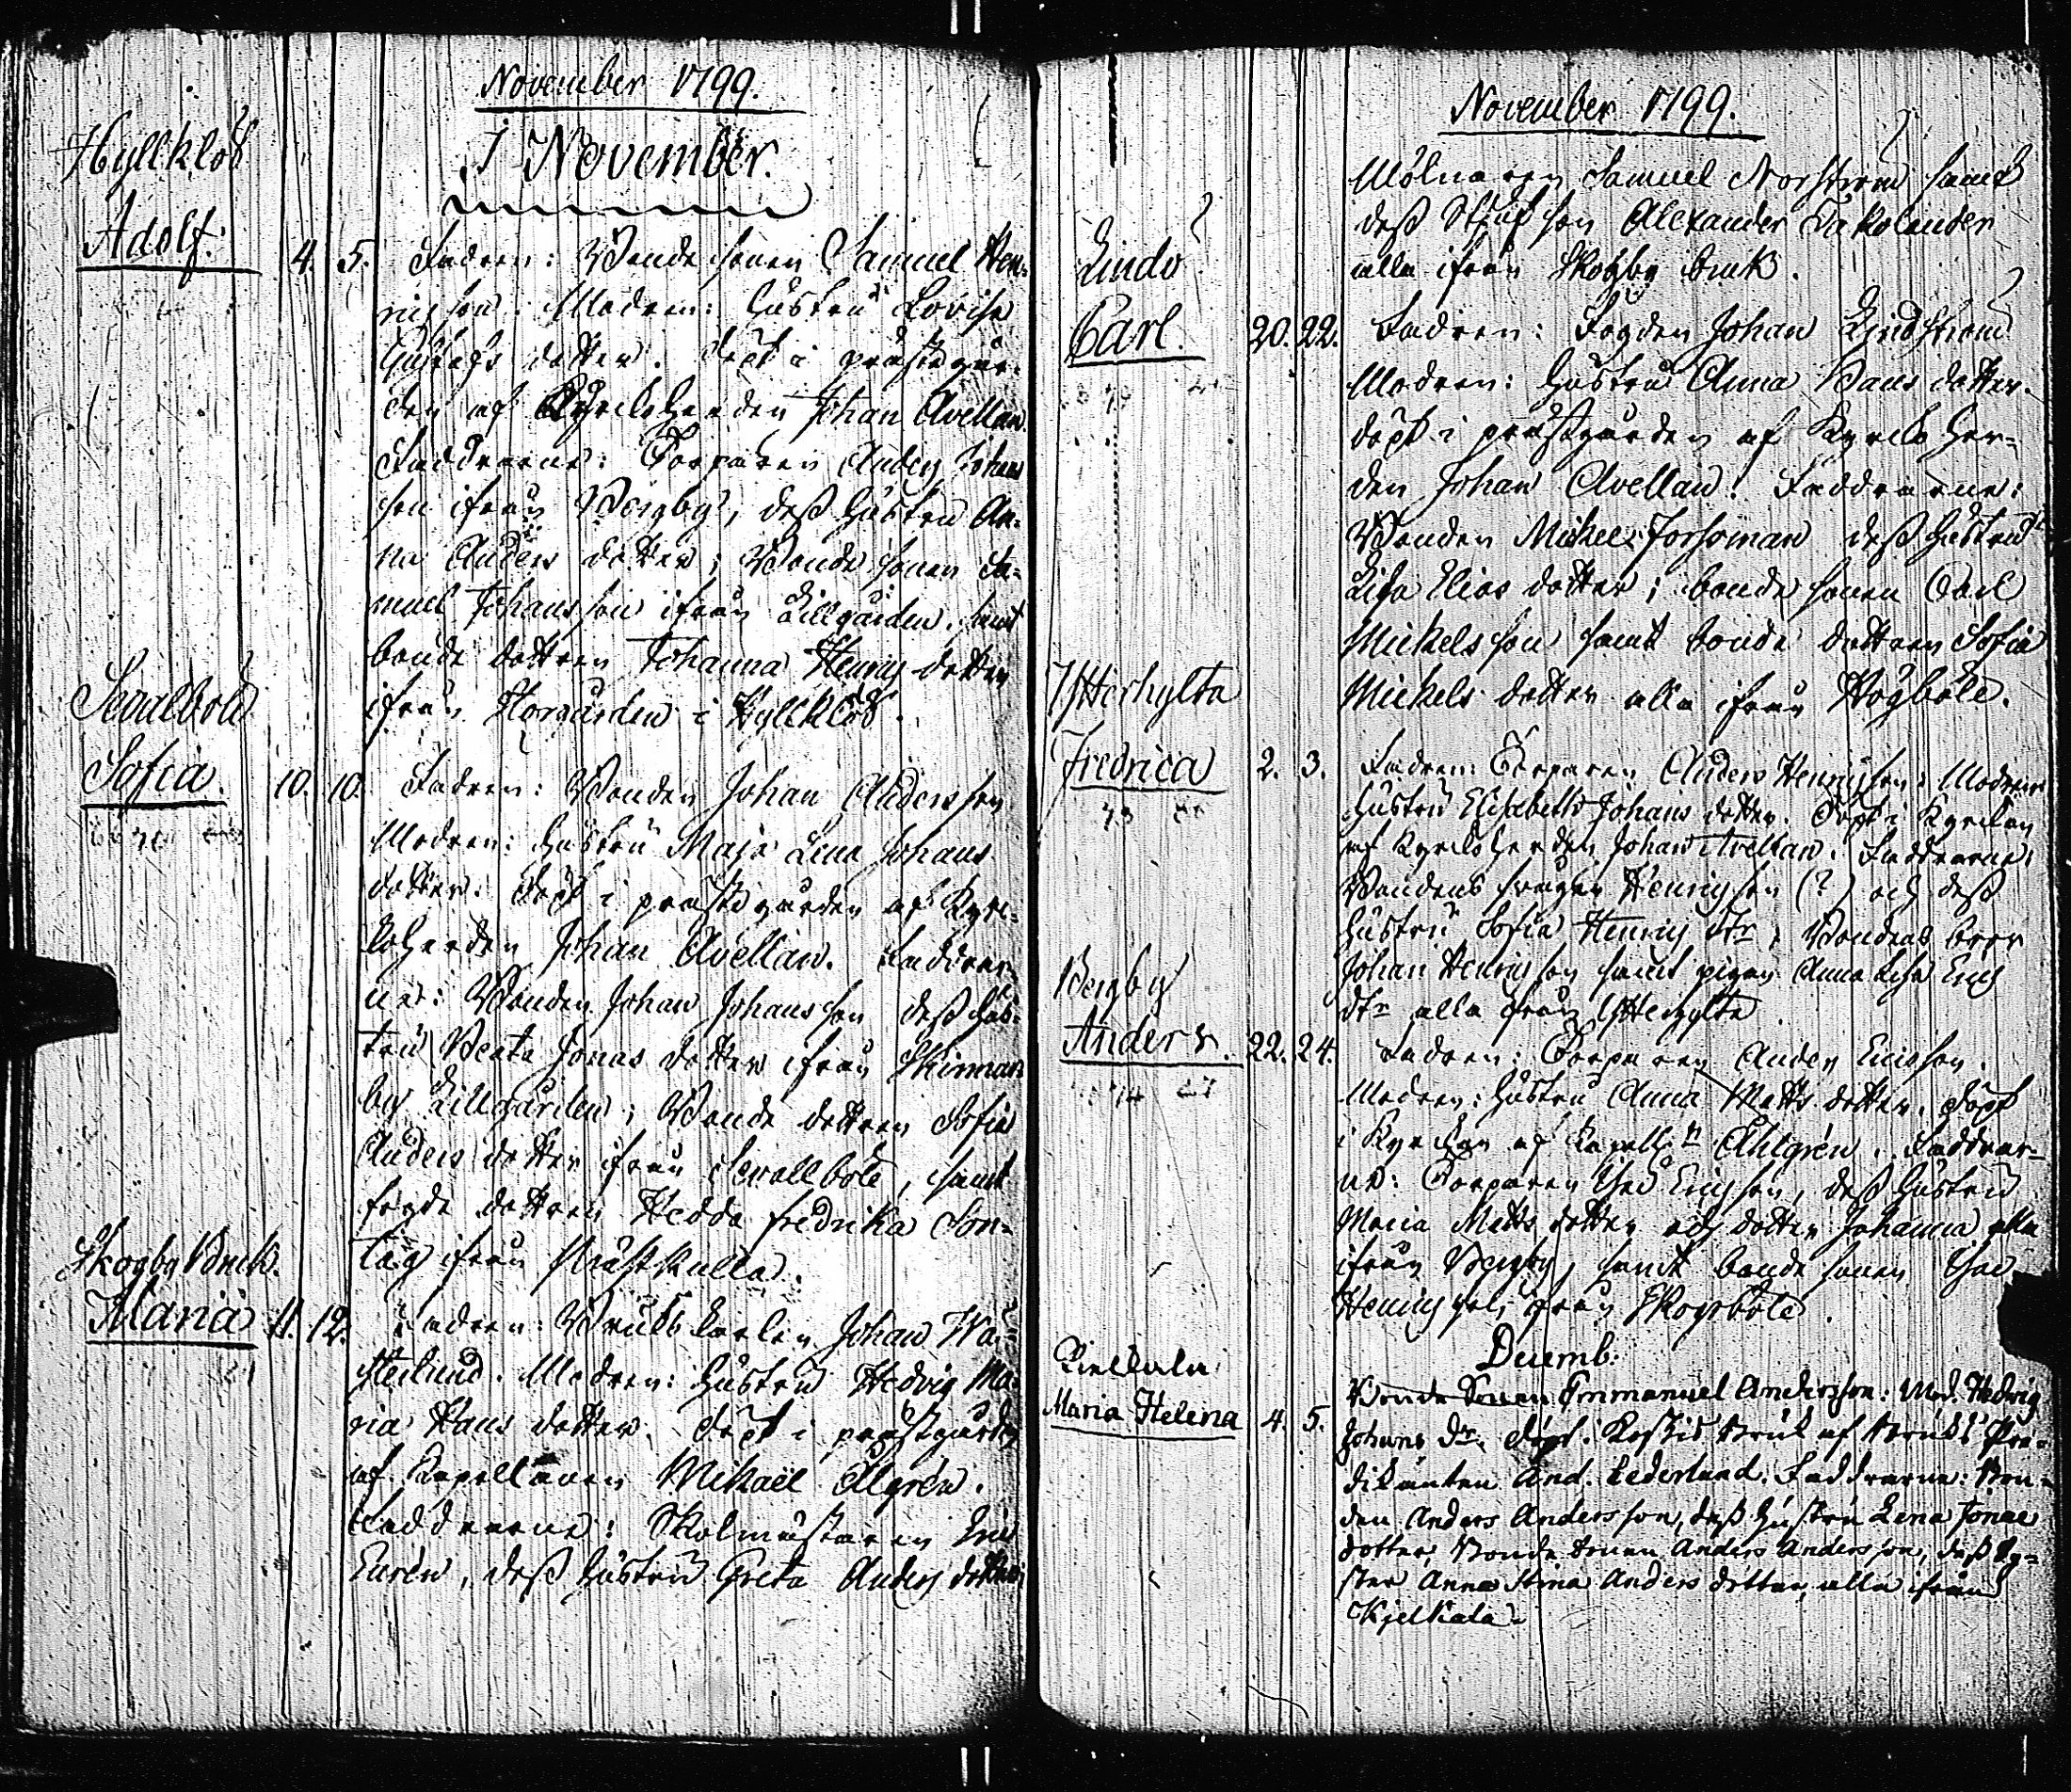 November 1799.
I November.
Hyllklöb
Adolf. 4. 5. Fadren: Bonde sonen Samuel Hen-
ricsson. Modren: hustru Lovisa
Gustafs dotter. döpt i prästgår-
den af Kyrckoherden Johan Avellan.
Faddrarne: Torparen Anders Johans
son ifrån Bergby, dess hustru An-
na Anders dotter; Bonde sonen Sa-
muel Johansson ifrån Lillgården, samt
bonde dottren Johanna Henrics dotter
ifrån Storgården i Hyllklöb.
Sevalbole
Sofia. 10. 10. Fadren: Bonden Johan Andersson
Modren: hustru Maja Lena Johans
dotter. döpt i prästegården af Kyrc-
koherden Johan Avellan. Faddrar-
ne: Bonden Johan Johansson dess hus-
tru Beata Jonas dotter ifrån Skinnar
by Lillgården; Bonde dottren Sofia
Anders dotter ifrån Sevallbole, samt
fogde dottren Hedda Fredrika Son-
tag ifrån Prästkulla.
Skogby Bruk.
Maria 11. 12. Fadren: Bruks karlen Johan We-
sterlund. Modren: hustru Hedvig Ma-
ria Hans dotter. döpt i prästgården
af Kapellanen Mikaël Elgrén.
Faddrarne: Skolmästaren Eric
Eurén, dess hustru Greta Anders dotter;
November 1799.
Mölnaren Samuel Norström samt
dess Stjufson Alexander Takolander
alla ifrån Skogby bruk.
Lindö
Carl. 20. 22. Fadren: Fogden Johan Lindström
Modren: hustru Anna Hans dotter.
döpt i prästgården af Kyrcko her-
den Johan Avellan. Faddrarne:
Bonden Mickel Forsoman dess hustru
Lisa Elias dotter; bonde sonen Carl
Mickelsson samt bonde dottren Sofia
Mickels dotter alla ifrån Högböle.
Ytterhylta
Fredrica 2. 3. Fadren: Torparen Anders Henricsson: Modren
hustru Elisabeth Johans dotter. Döpt i Kyrckan
af Kyrckoherden Johan Avellan. Faddrarne:
Bondens svåger Henricsson (?) och dess
hustru Sofia Henrics dtr, Bondens bror
Johan Henricsson samt pigan Anna Lisa Erics
dtr alla från Ytterhylta
Bergby
Anders. 22. 24. Fadren: Torparen Anders Ericsson.
Modren: hustru Anna Matts dotter. döpt
i Kyrckan af Kapelln Ehlgrén. Faddrar-
ne: Torparen Isac Ericsson, dess hustru
Maria Matts dotter och dotter Johanna alla
ifrån Bergby, samt bonde sonen Isac
Henricsson ifrån Skogsböle.
Decemb:
Kielkala
Maria Helena 4. 5. Bonde Sonen Emmanuel Andersson: Mod. Hedwig
Johans dr. döpt i Koskis Bruk af Bruks Pre-
dikanten And. Cederlund. Faddrarne: Bon-
den Anders Andersson, dess hustru Lena Jonae
dotter, Bonde sonen Anders Andersson, dess Sy-
ster Anna Stina Anders dotter, alla ifrån
Kjelkala.